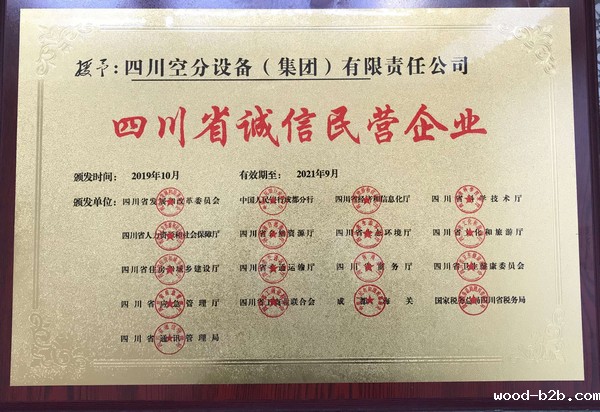 授予：四川空分设备（集团）有限责任公司
四川省诚信民营企业
颁发时间： 2019年10月 有效期至： 2021年9月
颁发单位： 四川省发展和改革委员会 中国人民银行成都分行 四川省经济和信息化厅 四川省科学技术厅
四川省人力资源和社会保障厅 四川省自然资源厅 四川省生态环境厅 四川省文化和旅游厅
四川省住房和城乡建设厅 四川省交通运输厅 四川省商务厅 四川省卫生健康委员会
四川省应急管理厅 四川省工商业联合会 成都海关 国家税务总局四川省税务局
四川省通讯管理局
wood-b2b.com